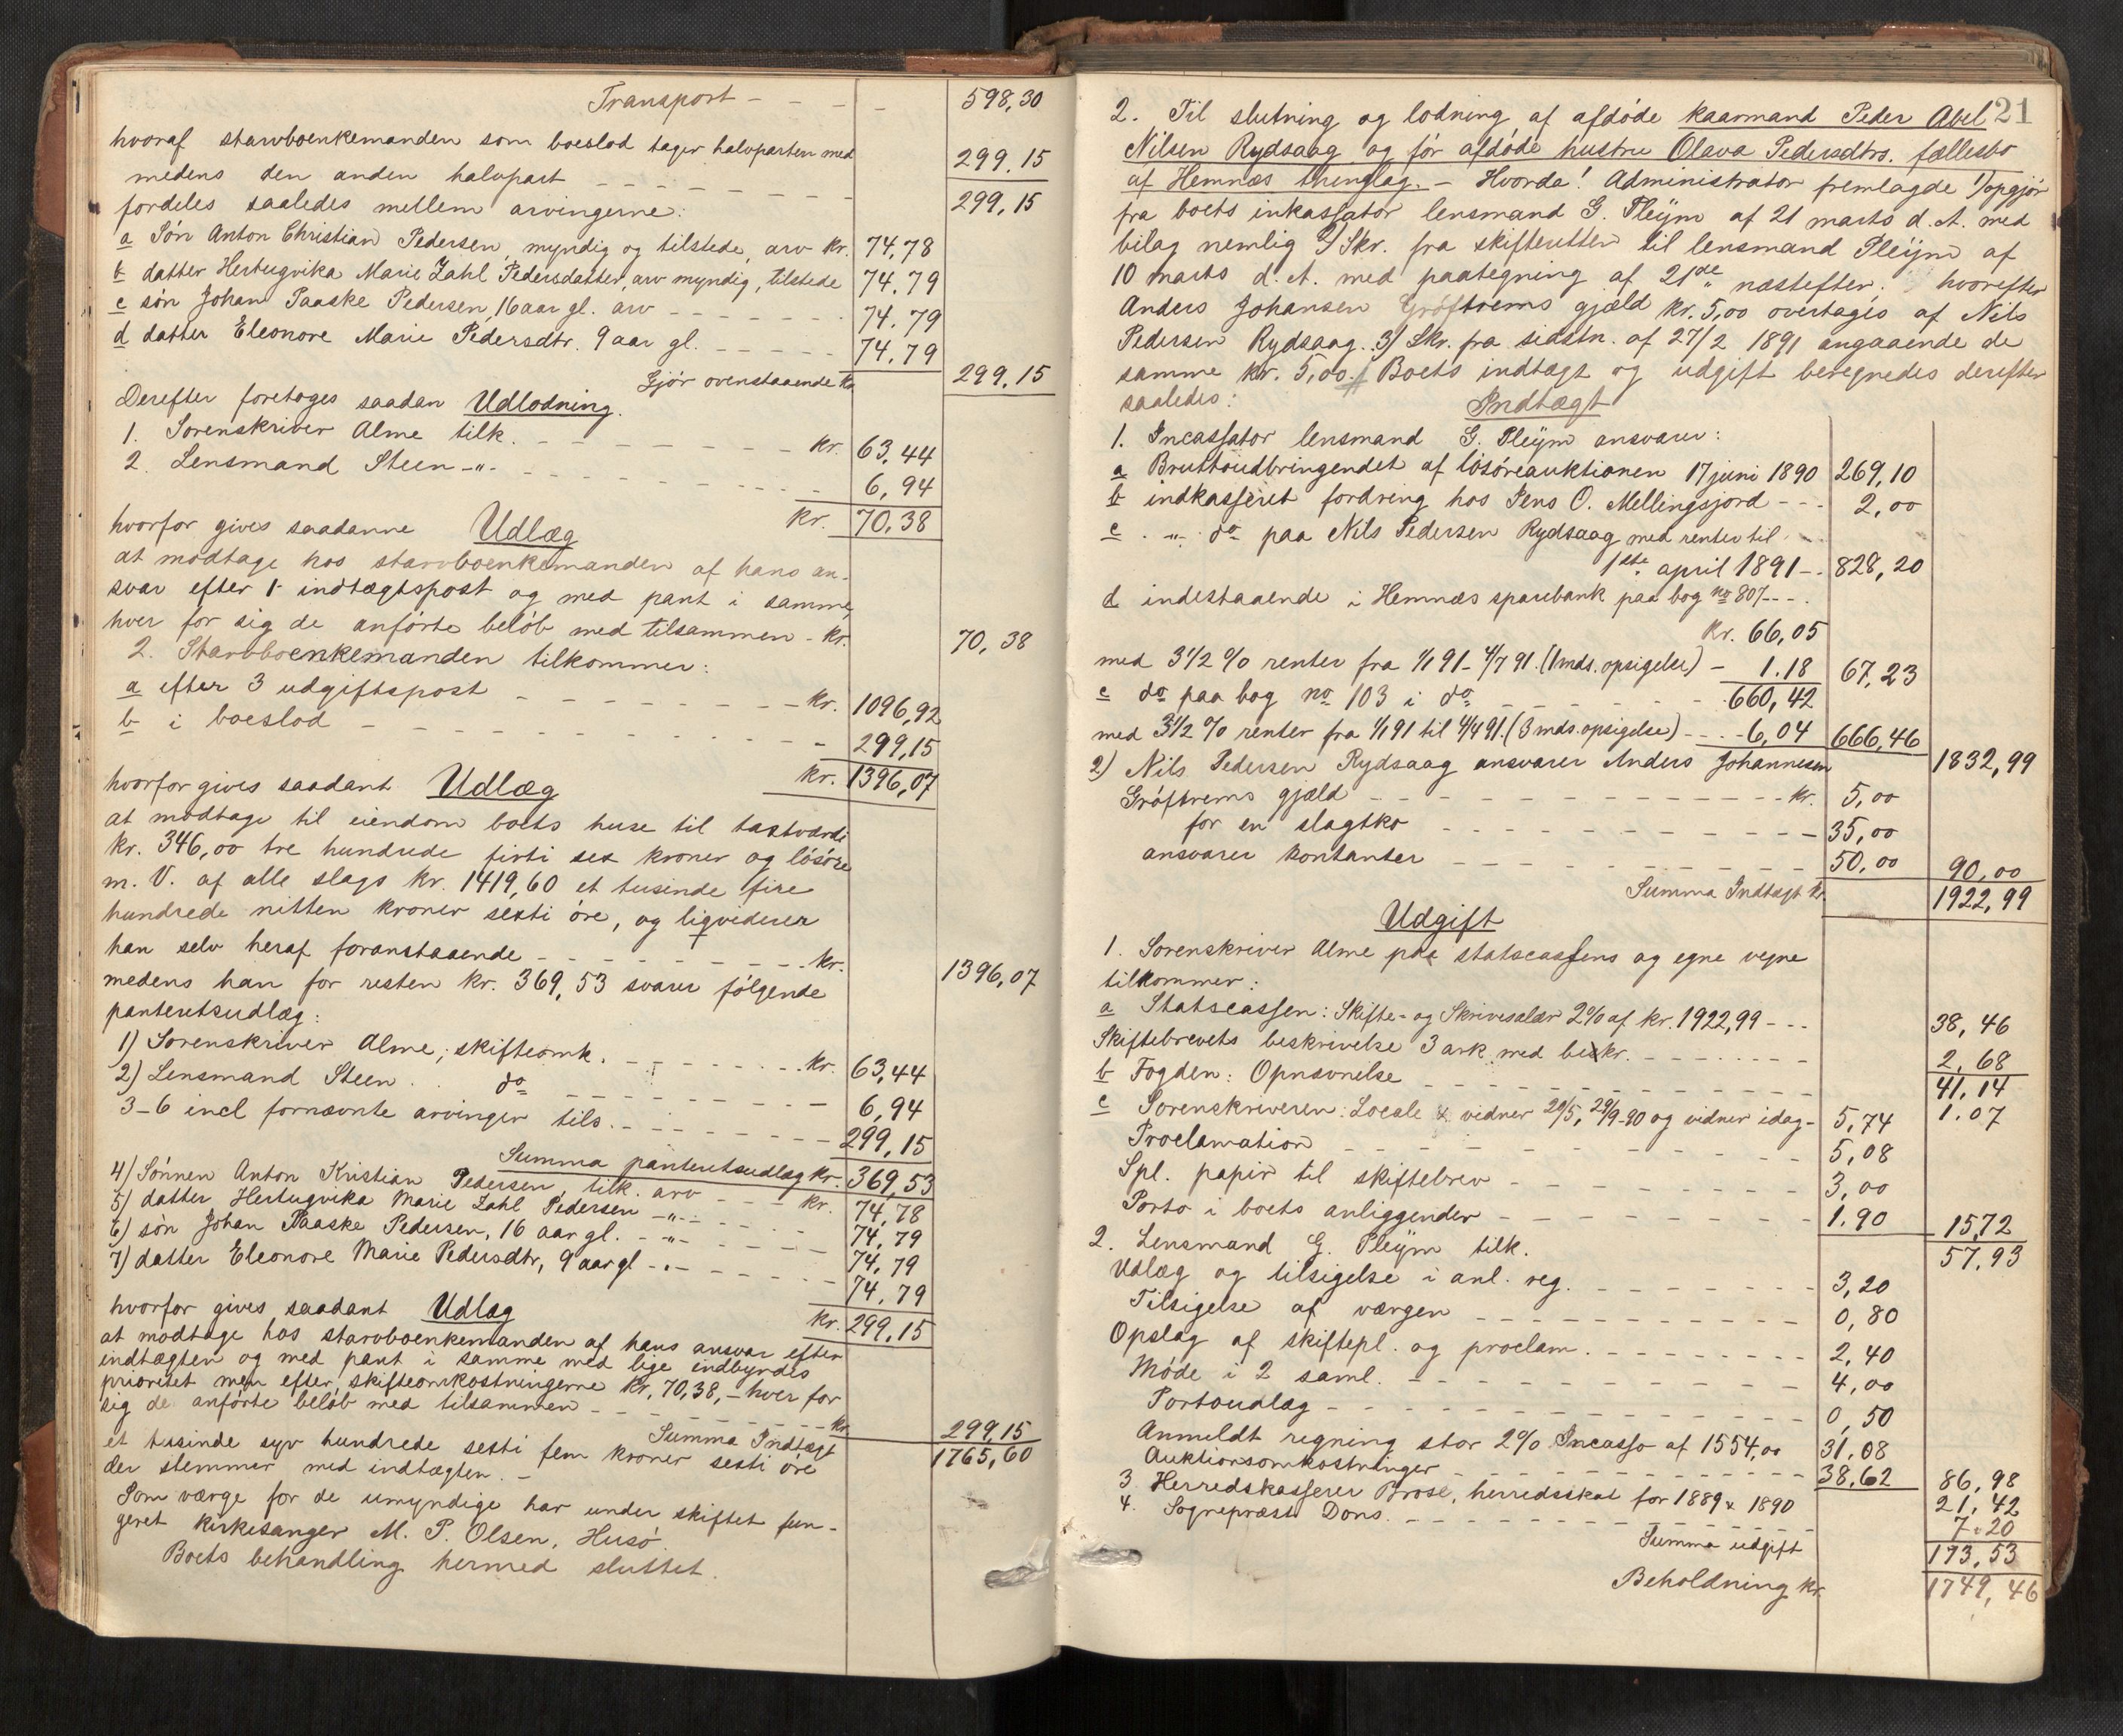 Transport - - - - 598,30
hvoraf starvboenkemanden som boeslod tager halvparten med 299.15
medens den anden halvpart - - - - - - - 299,15
fordeles saaledes mellem arvingerne:
a Søn Anton Christian Pedersen, myndig og tilstede, arv kr. 74,78
b datter Hertugvika Marie Zahl Pedersdatter, arv myndig, tilstede 74.79
c søn Johan Paaske Pedersen, 16 aar gl. arv - - - - - - - 74.79
d datter Eleonore Marie Pedersdtr. 9 aar gl. - - - - - 74.79
Gjør ovenstaaende kr. 299,15
Derefter foretoges saadan Udlodning.
1. Sorenskriver Alme tilk. - - - - - - - - kr. 63,44
2. Lensmand Steen -"- - - - - - - - - - 6,94
kr. 70,38
hvorfor gives saadanne Udlæg
at modtage hos starvboenkemanden af hans an-
svar efter 1 indtægtspost og med pant i samme,
hver for sig de anførte beløb med tilsammen - kr. 70,38
2. Starvboenkemanden tilkommer:
a efter 3 udgiftspost - - - - - - - - kr. 1096,92
b i boeslod - - - - - - - - - - - 299,15
kr. 1396,07
hvorfor gives saadant Udlæg
at modtage til eiendom boets huse til taxtværdi
kr. 346,00 tre hundrede firti sex kroner og løsøre
m. V. af alle slags kr. 1419,60 et tusinde fire
hundrede nitten kroner sexti øre, og liqviderer
han selv heraf foranstaaende - - - - - - - - - kr. 1396,07
medens han for resten kr. 369,53 svarer følgende
panteretsudlæg:
1) Sorenskriver Alme, skifteomk. - - - - - - - kr. 63,44
2) Lensmand Steen . . do - - - - - - - - - 6,94
3-6 incl fornævnte arvinger tils. - - - - - - - - 299,15
Summa panteretsudlæg kr. 369,53
4) Sønnen Anton Kristian Pedersen, tilk. arv - - - kr. 74,78
5) datter Hertugvika Marie Zahl Pedersen -"- - - - - 74,79
6) søn Johan Paaske Pedersen, 16 aar gl. - -"- - - - - 74,79
7) datter Eleonore Marie Pedersdtr, 9 aar gl -"- - - - - - 74,79
kr. 299,15
hvorfor gives saadant Udlæg
at modtage hos starvboenkemanden af hans ansvar efter
indtægten og med pant i samme med lige indbyrdes
prioritet men efter skifteomkostningerne kr. 70,38, - hver for
sig de anførte beløb med tilsammen - - - - - - - - - kr. 299,15
Summa Indtægt 1765,60
et tusinde syv hundrede sexti fem kroner sexti øre
der stemmer med indtægten. -
Som værge for de umyndige har under skiftet fun-
geret kirkesanger M. P. Olsen, Husø.
Boets behandling hermed sluttet.
21
2. Til slutning og lodning af afdøde kaarmand Peder Abel
Nilsen Rydsaag og før afdøde hustru Olava Pedersdtrs. fællesbo
af Hemnæs thinglag. - Hvorda! Administrator fremlagde 1) opgjør
fra boets inkassator lensmand G. Pleÿm af 21 marts d. A. med
bilag nemlig 2) Skr. fra skifteretten til lensmand Pleÿm af
10 marts d. A. med paategning af 21de næstefter. hvorefter
Anders Johansen Grøftrems gjæld kr. 5,00 overtages af Nils
Pedersen Rydsaag. 3) Skr. fra sidstn. af 27/2 1891 angaaende de
samme kr. 5,00. Boets indtægt og udgift beregnedes derefter
saaledes: Indtægt
1. Incassator lensmand G. Pleÿm ansvarer:
a Bruttoudbringendet af løsøreauktionen 17 juni 1890 269,10
b indkasseret fordring hos Jens O. Mellingsjord - - - 2,00
c . -"- do paa Nils Pedersen Rydsaag med renter til . -
1ste april 1891 - . 828,20
d indestaaende i Hemnæs sparebank paa bog no 807 - - - .
kr. 66,05
med 3 1/2 % renter fra 1/1 91 - 4/7 91. (1 mds. opsigelse) - 1.18 67,23
e do paa bog no 103 i do - - - - - - 660,42
med 3 1/2 % renter fra 1/1 91 til 4/4 91. (3 mds. opsigelse) - - - - 6,04 666,46 1832,99
2) Nils Pedersen Rydsaag ansvarer Anders Johannesen
Grøftrems gjæld - - - - - - - - - - - - - kr. 5,00
for en slagtko - - - - - - - - - - - 35,00
ansvarer kontanter - - - - - - - - - - 50,00 90,00
Summa Indtægt kr. 1922,99
Udgift
1. Sorenskriver Alme paa statscassens og egne vegne
tilkommer:
a Statscassen: Skifte- og Skriversalær 2% af kr. 1922,99 - - - 38,46
Skiftebrevets beskrivelse 3 ark med beskr. - - - - - - - - 2,68
41,14
b Fogden: Opnævnelse - - - - - - - - - - - - 1.07
c Sorenskriveren: Locale & vidner 29/5, 29/9-90 og vidner idag - 5,74
Proclamation - - - - - - - - - - - - 5,08
Spl. papir til skiftebrev - - - - - - - - 3,00
Porto i boets anliggender - - - - - - - - 1.90 15,72
57,93
2. Lensmand G. Pleÿm tilk.
Udlæg og tilsigelse i anl. reg. - - - - - - - 3,20
Tilsigelse af værgen - - - - - - - - - - 0,80
Opslag af skiftepl. og proclam. - - - - - - - - 2,40
Møde i 2 saml. - - - - - - - - - - - - 4,00
Portoudlæg - - - - - - - - - - - - - 0,50
Anmeldt regning stor 2% Incasso af 1554,00 31,08
Auktionsomkostninger - - - - - - - - - - - 38,62 86,98
3. Herredskasserer Brose, herredsskat for 1889 & 1890 21,42
4. Sognepræst Dons. - - - - - - - - - - - - 7.20
Summa udgift 173,53
Beholdning kr. 1749,46